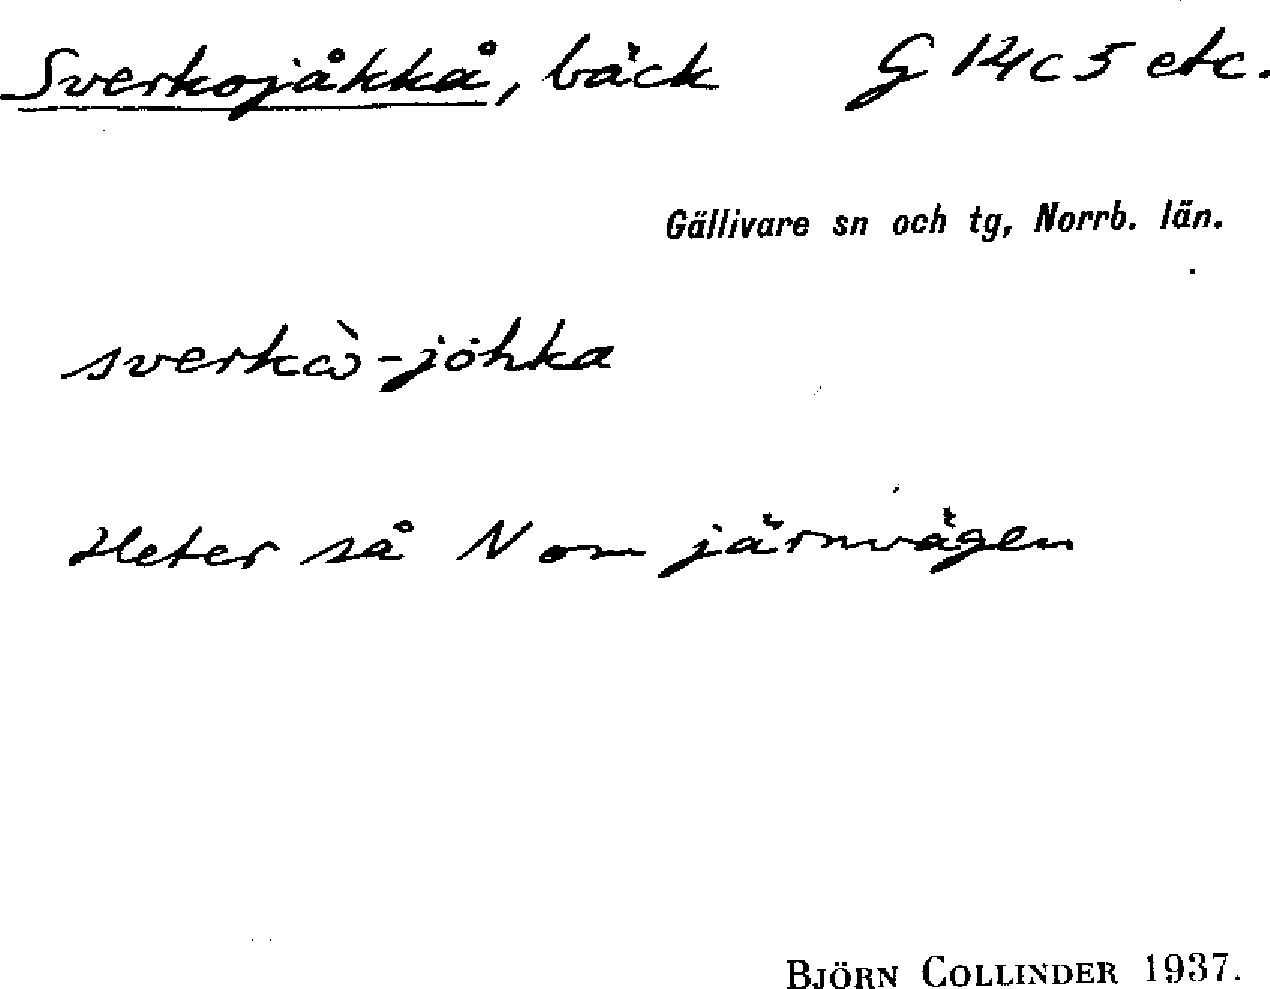 Sverkojåkkå, bäck G 14 c 5 etc.
Gällivare sn och tg, Norrb. län.
sverkὼ-jȯhka
Heter så N om järnvägen
BJÖRN COLLINDER 1937.